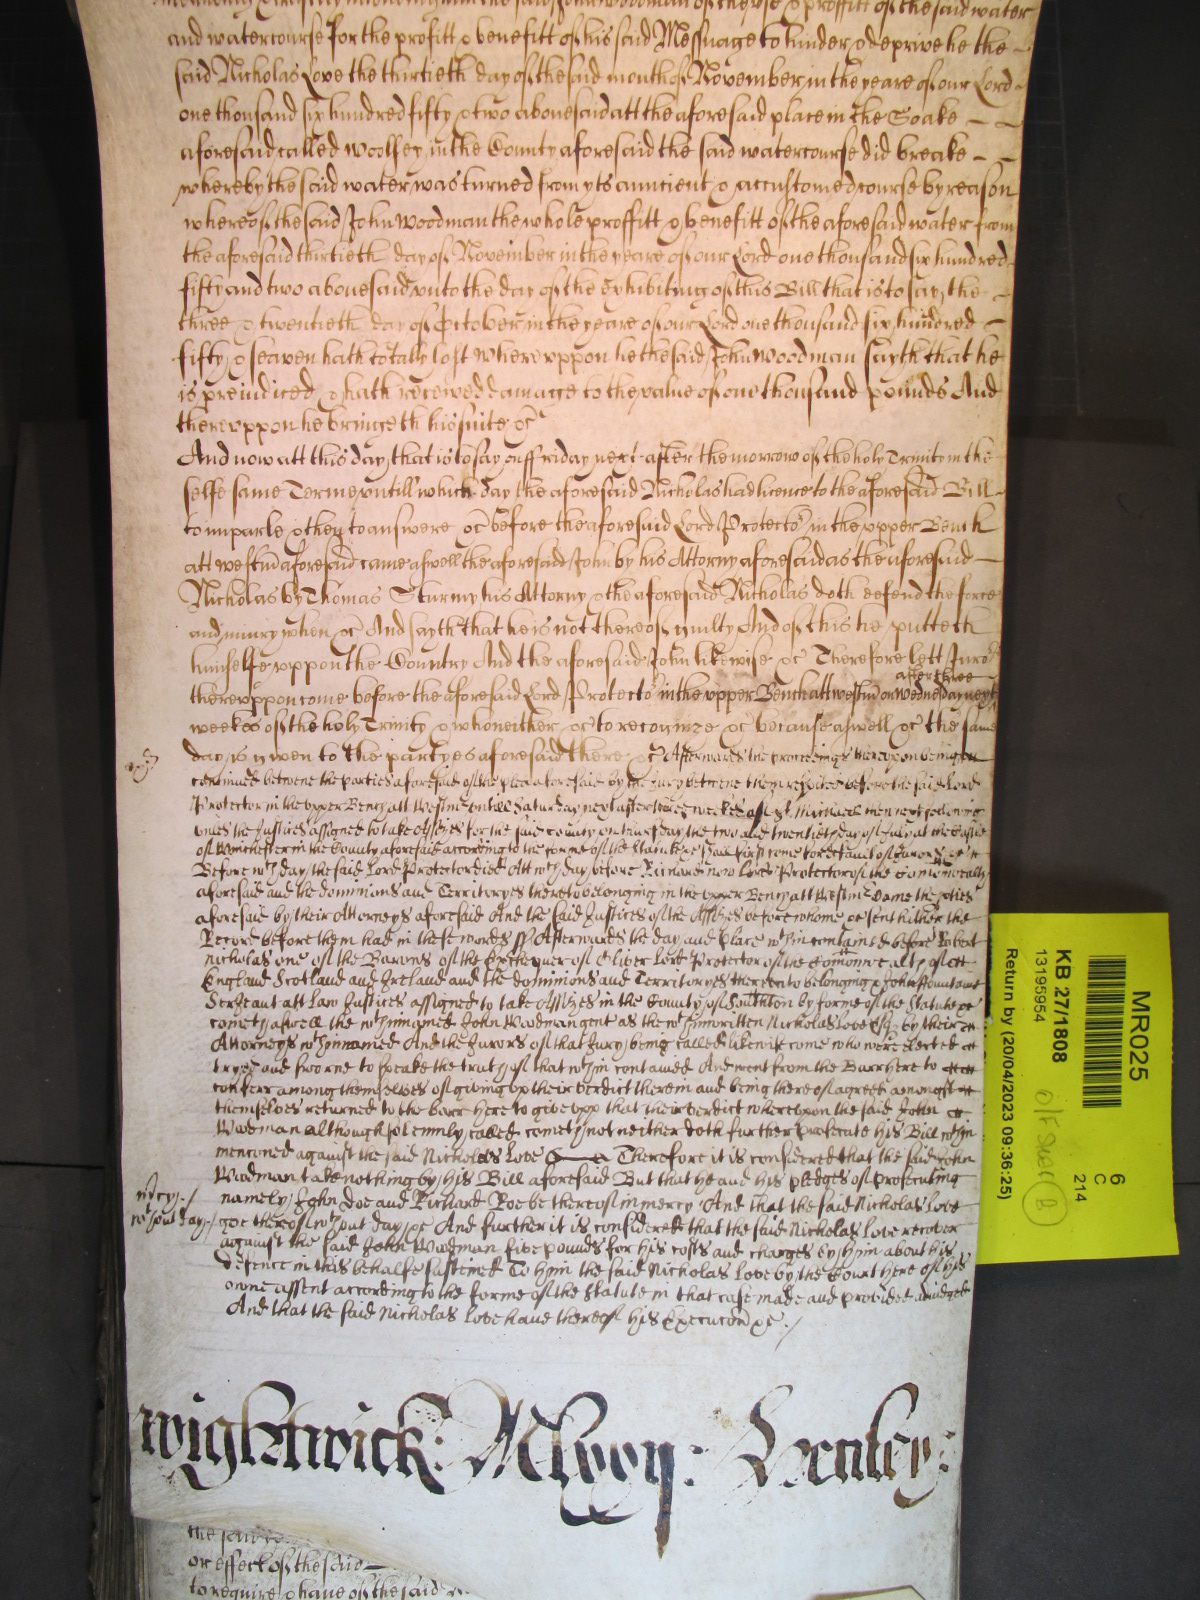 the said John Woodman of the use & proffitt of the said water
and watercourse for the profitt & benefitt of his said Messuage to hinder & deprive he the
said Nicholas Love the thirtieth day of the said month of November in the yeare of our Lord
one thousand six hundred fifty & two abovesaid att the aforesaid place in the Soake
aforesaid called Woolsey in the County aforesaid the said watercourse did breake
whereby the said water was turned from yts auntient & accustomed course by reason
whereof the said John Woodman the whole proffitt & benefitt of the aforesaid water from
the aforesaid thirtieth day of November in the yeare of our Lord one thousand six hundred
fifty and two abovesaid unto the day of the exhibiting of this Bill that is to say the
three & twentieth day of October in the yeare of our Lord one thousand six hundred
fifty & seaven hath totally lost whereuppon he the said John Woodman sayth that he
is preiudiced & hath received damage to the value of one thousand pounds And
thereuppon he bringeth his suite &c
And now att this day that is to say on ffriday next after the morrow of the holy Trinity in the
selfe same Terme untill which day the aforesaid Nicholas had licence to the aforesaid Bill
to imparle & then to answere &c before the aforesaid Lord Protector in the upper Bench
att Westm aforesaid came aswell the aforesaid John by his Attorny aforesaid as the aforesaid
Nicholas by Thomas Sturmy his Attorny & the aforesaid Nicholas doth defend the force
and iniury when &c And sayth that he is not thereof guilty And of this he putteth
himselfe uppon the Country And the aforesaid John likewise &c Therefore lett Juro
after three
thereuppon come before the aforesaid Lord Protector in the upper Bench att Westm on Wednesday next
weekes of the holy Trinity & who neither &c to recognize &c because aswell &c the same
day is given to the partyes aforesaid there &c Afterwards the proceedings thereupon being
continued betweene the parties aforesaid of the plea aforesaid by the Jury betweene them respited before the said Lord
Protector in the upper Bench att Westm untill Saturday next after three weekes of St Michael then next following
unles the Justices assigned to take Assizes for the said county on thursday the two and twentieth day of July at the Castle
of Winchester in the County aforesaid according to the forme of the Statute &c shall first come for default of Jurors &c
Before wch day the said Lord Protector died Att wch day before Richard now Lord Protector of the Comonwealth
aforesaid and the dominions and Territoryes thereto belonging in the upper Bench att Westm Came the pties
aforesaid by their Attorneys aforesaid And the said Justices of the Assizes before whome &c sent hither the
Record before them had in these words ss Afterwards the day and place wthin contained before Robert
Nicholas one of the Barons of the Exchequer of Oliver Lord Protector of the Comonwealth of
England Scotland and Ireland and the dominions and Territoryes thereto belonging & John ffountaine
Serjeant att Law Justices assigned to take Assizes in the County of Southton by forme of the Statute &c
cometh aswell the wthinnamed John Woodman gent as the wthinwritten Nicholas Love Esq by their
Attorneys wthinnamed And the Jurors of that Jury being called likewise come who were elected
tryed and sworne to speake the truth of that wthin contained And went from the Barr here to
conferr among themselves of giving up their verdict therein and being thereof agreed amongst
themselves returned to the barr here to give upp that their verdict whereupon the said John
Woodman although solemnly called cometh not neither doth further prosecute his Bill wthin
mentioned against the said Nicholas Love Therefore it is considered that the said John
Woodman take nothing by his Bill aforesaid But that he and his pledges of prosecuting
mercy
namely John Doe and Richard Roe be thereof in mercy And that the said Nicholas Love
wthout day
goe thereof wthout day &c And further it is considered that the said Nicholas Love recover
against the said John Woodman five pounds for his costs and charges by him about his
defence in this behalfe susteined To him the said Nicholas Love by the Court here of his
owne assent according to the forme of the Statute in that case made and provided adiudged
And that the said Nicholas Love have thereof his Execucon &c
Wightwick:
the said
or effect of the said
to require & have of the said
MR025
6
C
214
KB 27/1808
13195954
Return by (20/04/2023 09:36:25)